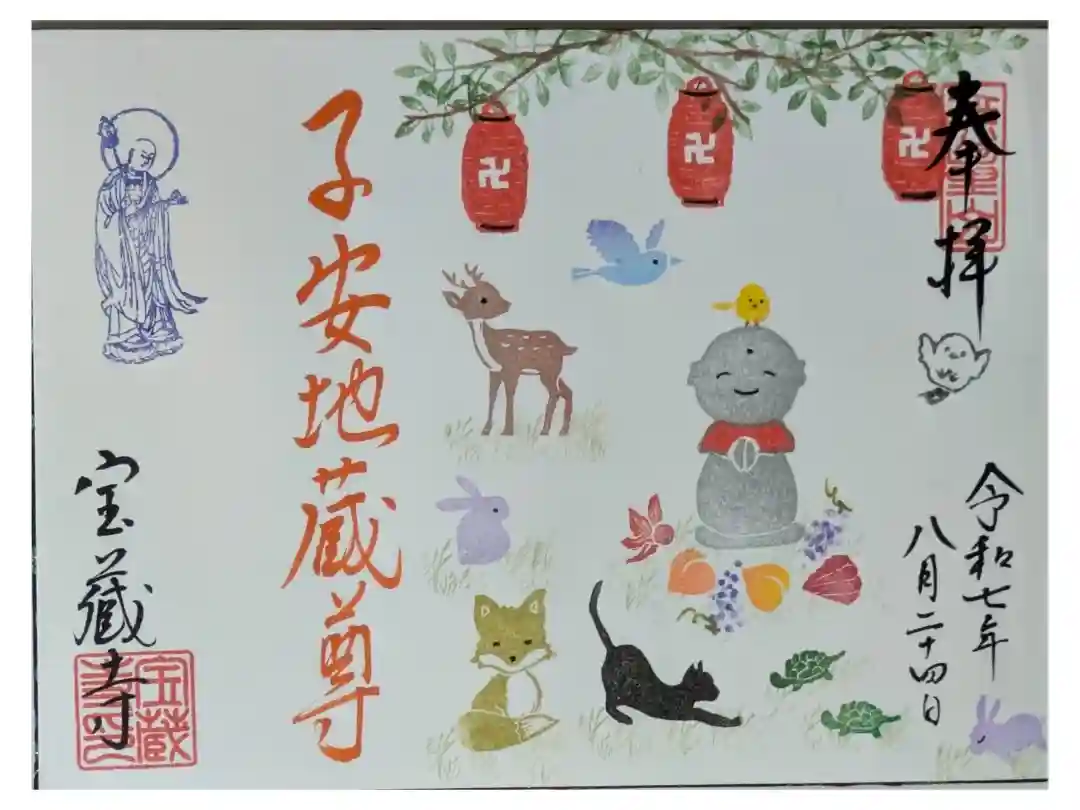 奉拝
令和七年
八月二十四日
卍 卍 卍
子安地蔵尊
宝蔵寺
宝蔵
寺印